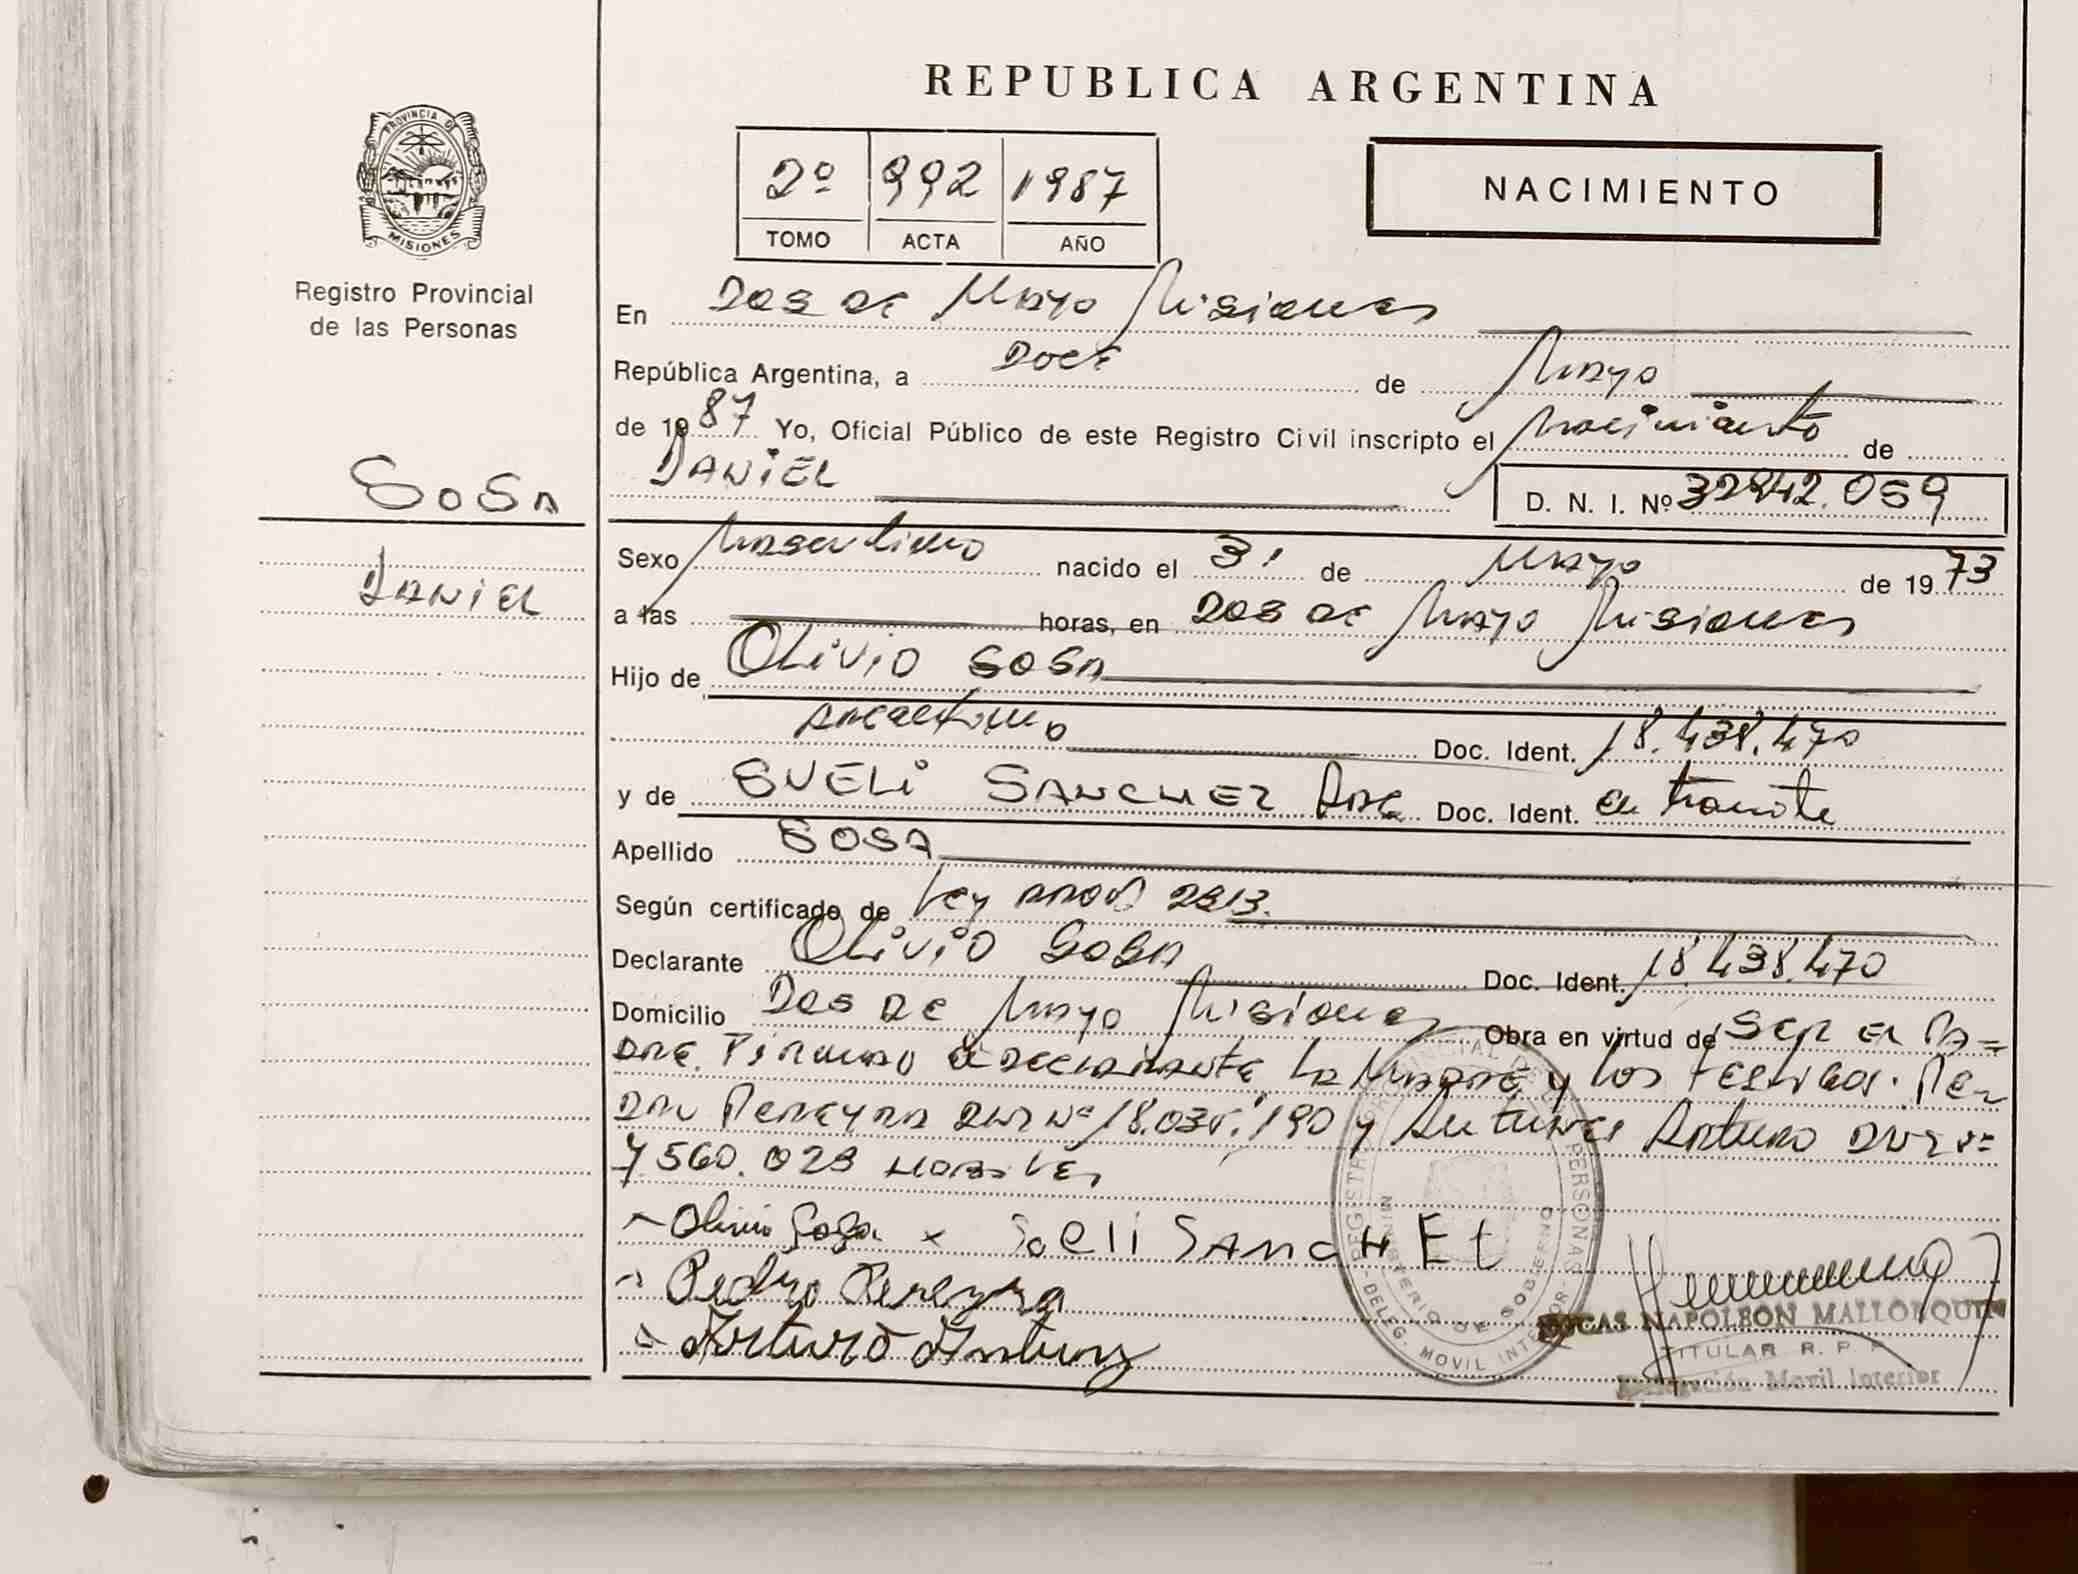 REPUBLICA ARGENTINA
PROVINCIA DE
MISIONES
Registro Provincial
de las Personas
2º 992 1987
TOMO ACTA AÑO
NACIMIENTO
En Dos de Mayo Misiones
República Argentina, a Doce de Mayo
de 1987 Yo, Oficial Público de este Registro Civil inscripto el Nacimiento de
DANIEL
D. N. I. Nº 32942.059
SOSA
DANIEL
Sexo Masculino nacido el 31 de Mayo de 1973
a las horas, en Dos de Mayo Misiones
Hijo de OLiViO SOSA
Argentino Doc. Ident. 18.438.470
y de SUELi SANCHEZ Arg Doc. Ident. en tramite
Apellido SOSA
Según certificado de Ley 2313.
Declarante OLiViO SOSA Doc. Ident. 18.438.470
Domicilio Dos de Mayo Misiones Obra en virtud de Ser el Pa=
dre. Firmando el declarante la Madre y los testigos.
Pereyra DNI Nº 18.035.190 y Antunez Arturo DNI Nº
7560.023
Olivio Sosa x SoEli SANCHEt
Pedro Pereyra
Arturo Antunez
REGISTRO PROVINCIAL DE LAS PERSONAS
DELEG. MOVIL INTERIOR
MINISTERIO DE GOBIERNO
LUCAS NAPOLEON MALLORQUIN
TITULAR R. P. P.
Delegación Movil Interior